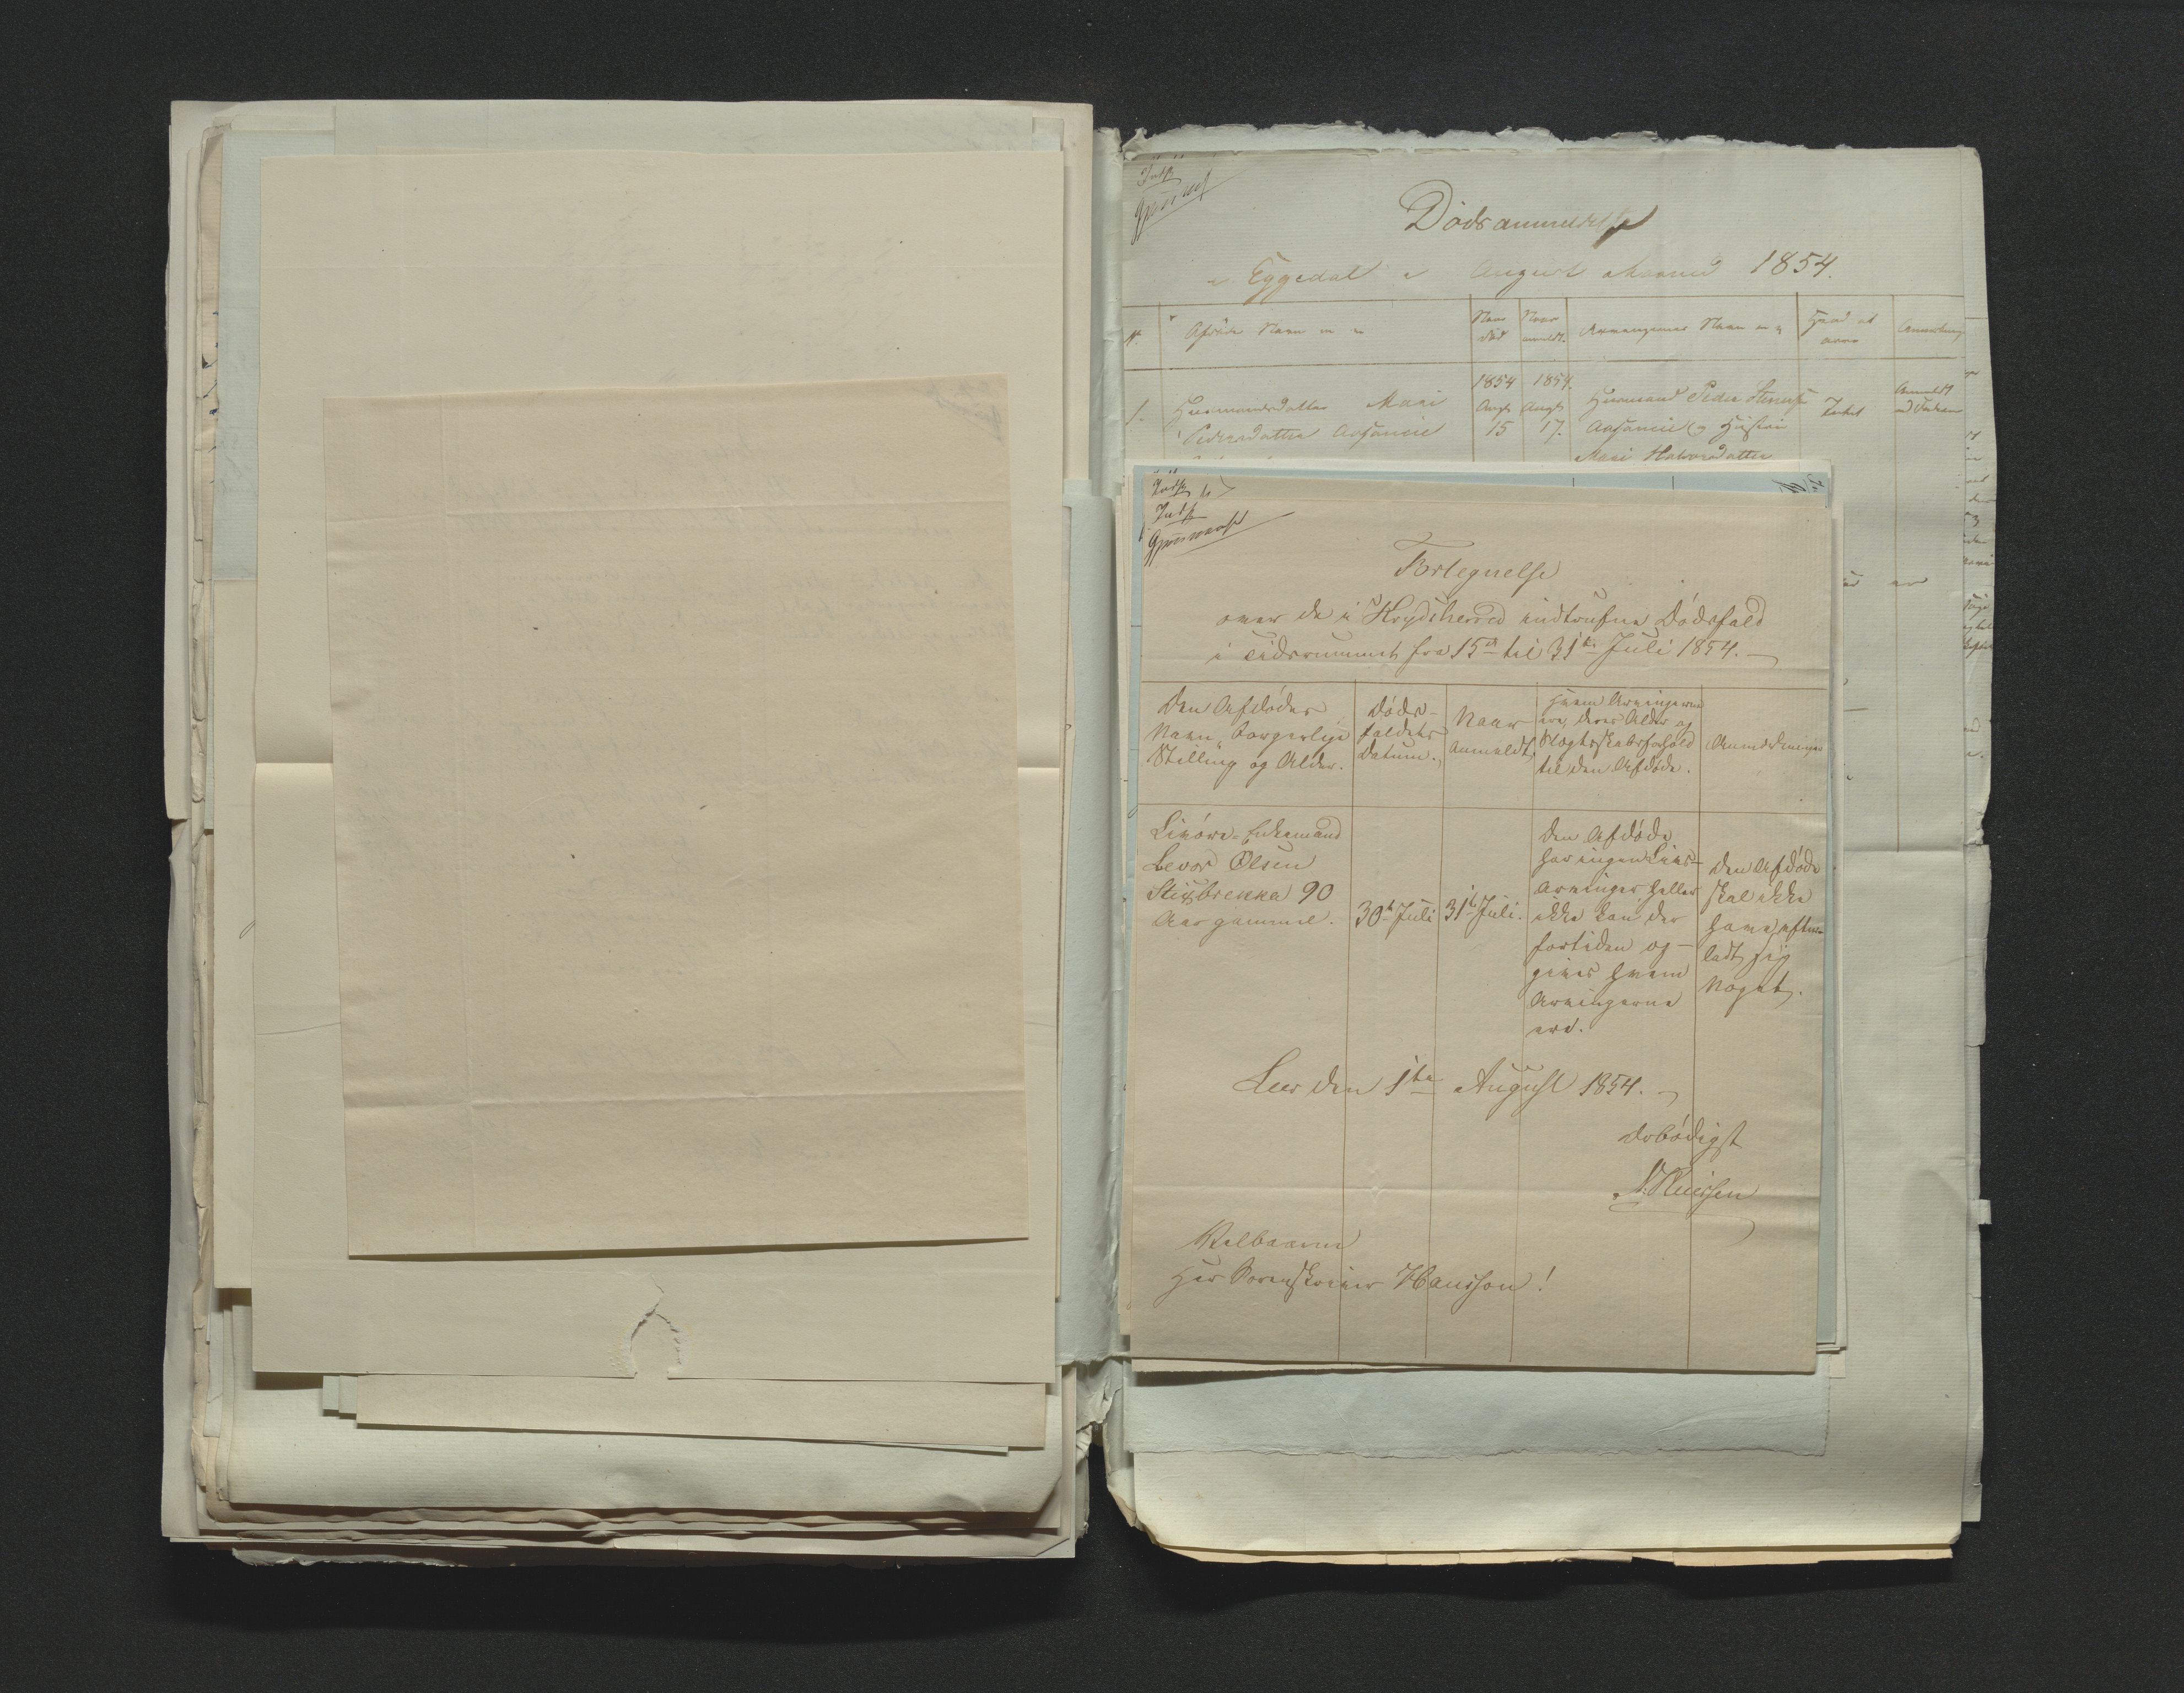 Indf
Dødsanmeldelse
i Eggedal i August Maaned 1854.
N. Afdødes Navn Naar død Naar anmeldt. Arvingernes Navn Hvad at arve Anmærkning
1854 1854.
1. Huusmandsdatter Mari Augt Augt Huusmand Peder Intet Anmeldt
Pedersdatter 15 17. og Hustru
Mari Halvorsdatter
Indf
Indf
Fortegnelse
over de i Krydsherred indtrufne Dødsfald
i Tidsrummet fra 15de til 31te Juli 1854.
Den Afdødes
Navn, borgerlige
Stilling og Alder.
Døds-
faldets
Datum.
Naar
Anmeldt.
Hvem Arvingerne
ere, deres Alder og
Slægtskabsforhold
til den Afdøde.
Anmærkninger
Enkemand
Levor Olsen
90
Aar gammel.
30te Juli
31te Juli.
Den Afdøde
har ingen Livs-
Arvinger heller
ikke kan der
fortiden op-
gives hvem
Arvingerne
ere.
Den Afdøde
skal ikke
have efter-
ladt sig
Noget.
Leer den 1te August 1854.
Ærbødigst
Velbaarne
Herr Sorenskriver Hansson!